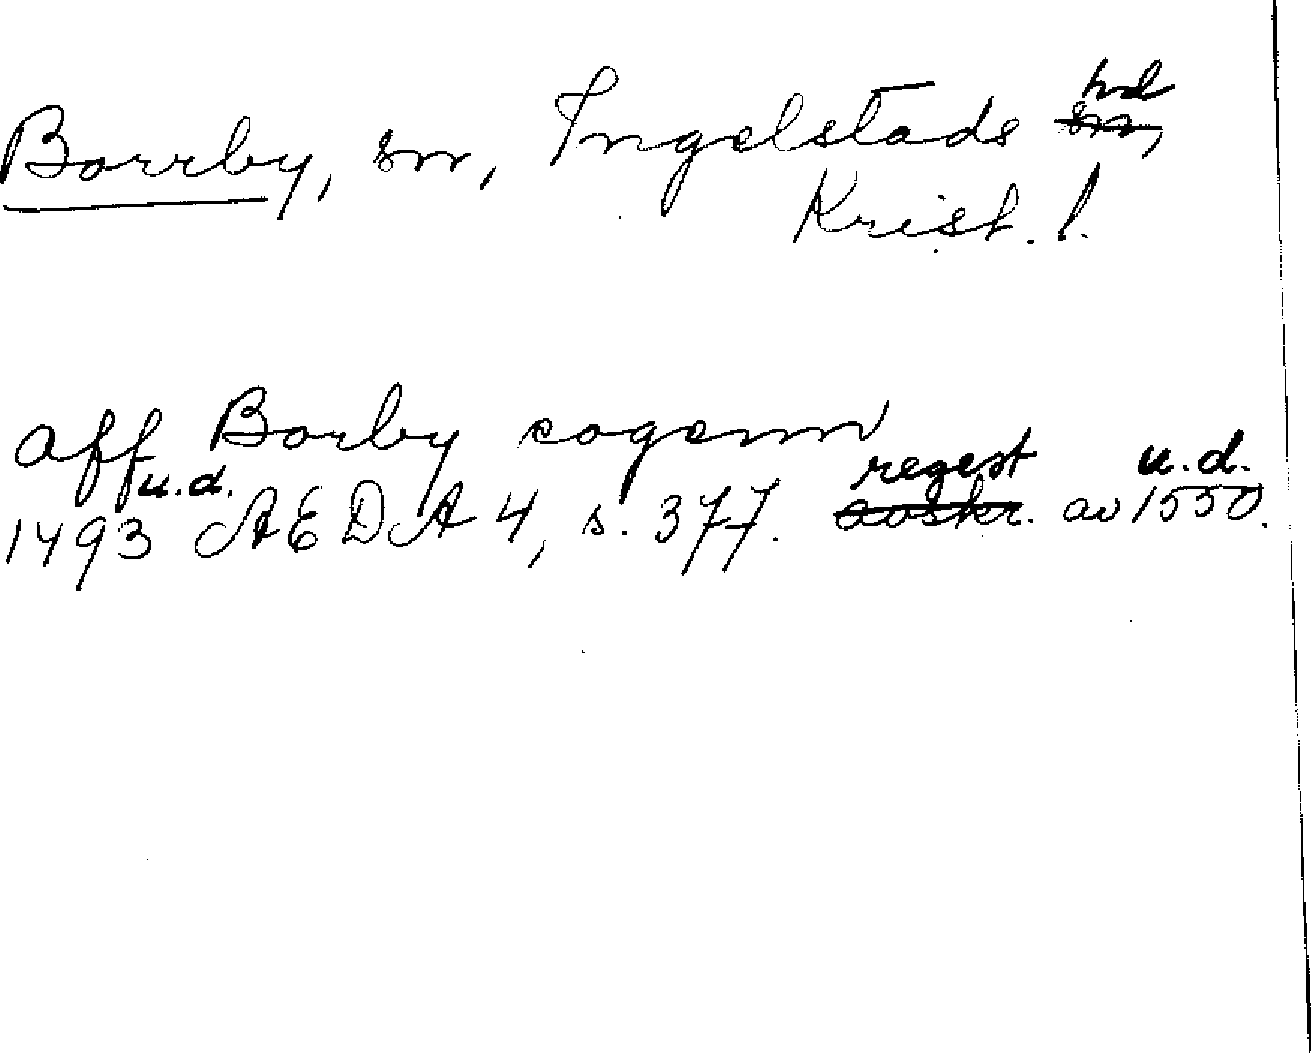 Borrby, sn, Ingelstads hd
Krist. l.
aff Borby sogenn
u.d. regest u.d.
1493 AEDA 4, s. 377. avskr. av 1550.